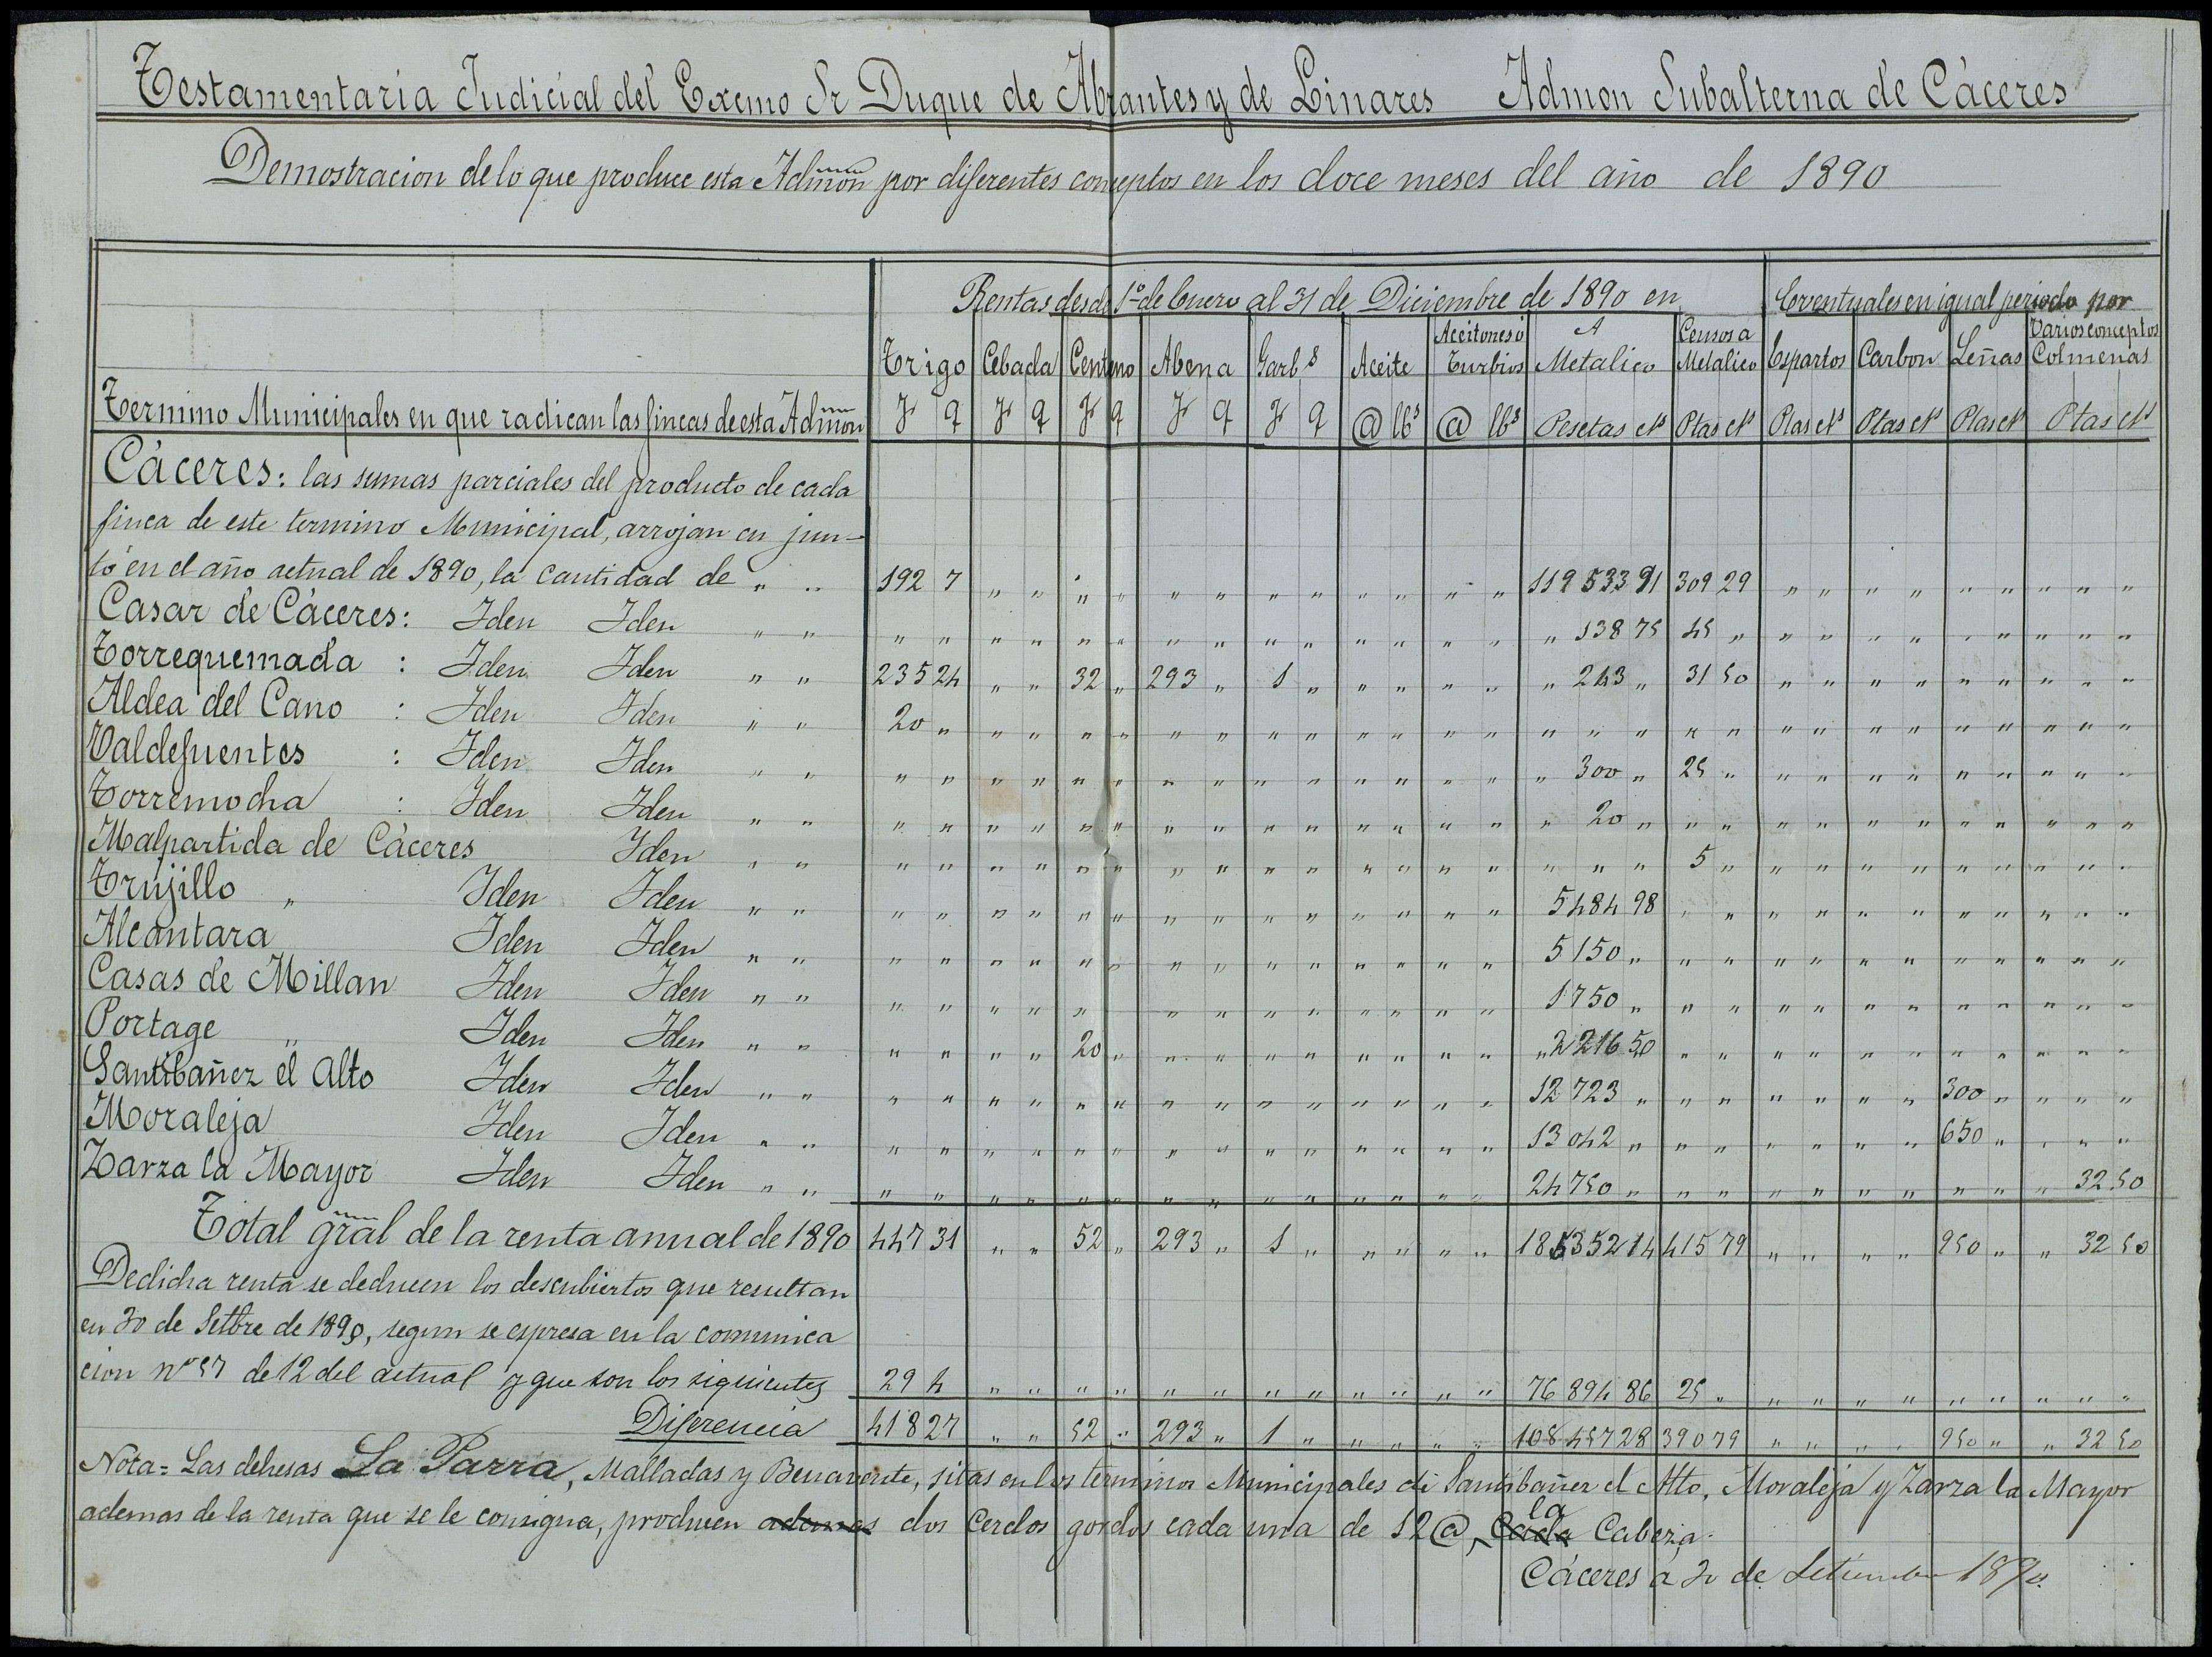 Testamentaria Judicial del Excmo Sr Duque de Abrantes y de Linares Admon Subalterna de Cáceres
Demostracion de lo que produce esta Admon por diferentes conceptos en los doce meses del año de 1890
Rentas desde 1º de Enero al 31 de Diciembre de 1890 en Eventuales en igual periodo por
Trigo Cebada Centeno Abena Garbs Aceite Aceitones ó Turbios A Metalico Censos a Metalico Espartos Carbon Leñas Varios conceptos Colmenas
Termino Municipales en que radican las fincas de esta Admon F q F q F q F q F q @ lbs @ lbs Pesetas cts Ptas cts Ptas cts Ptas cts Ptas cts Ptas cts
Cáceres: las sumas parciales del producto de cada
finca de este termino Municipal, arrojan en jun-
to en el año actual de 1890, la cantidad de " " 192 7 " " " " " " " " " " " " 119 533 91 309 29 " " " " " " " " "
Casar de Cáceres: Iden Iden " " " " " " " " " " " " " " " " " 138 75 45 " " " " " " " " " "
Torrequemada : Iden Iden " " 235 24 " " 32 " 293 " 1 " " " " " " 243 " 31 50 " " " " " " " " "
Aldea del Cano : Iden Iden " " 20 " " " " " " " " " " " " " " " " " " " " " " " " " " "
Valdefuentes : Iden Iden " " " " " " " " " " " " " " " " " 300 " 25 " " " " " " " " " "
Torremocha : Iden Iden " " " " " " " " " " " " " " " " " 20 " " " " " " " " " " " "
Malpartida de Cáceres Iden " " " " " " " " " " " " " " " " " " " 5 " " " " " " " " " "
Trujillo " Iden Iden " " " " " " " " " " " " " " " " 5484 98 " " " " " " " " " " "
Alcantara Iden Iden " " " " " " " " " " " " " " " " 5150 " " " " " " " " " " " "
Casas de Millan Iden Iden " " " " " " " " " " " " " " " " 1750 " " " " " " " " " " " "
Portage " Iden Iden " " " " " " 20 " " " " " " " " " " 2216 50 " " " " " " " " " " "
Santibañez el Alto Iden Iden " " " " " " " " " " " " " " " " 12 723 " " " " " " " 300 " " " "
Moraleja Iden Iden " " " " " " " " " " " " " " " " 13 042 " " " " " " " 650 " " " "
Zarza la Mayor Iden Iden " " " " " " " " " " " " " " " " 24 750 " " " " " " " " " " 32 50
Total gral de la renta anual de 1890 447 31 " " 52 " 293 " 1 " " " " " 185352 14 415 79 " " " " 950 " " 32 50
De dicha renta se deducen los descubiertos que resultan
en 30 de Setbre de 1890, segun se espresa en la comunica
cion nº 57 de 12 del actual y que son los siguientes 29 4 " " " " " " " " " " " " 76 894 86 25 " " " " " " " " " "
Diferencia 418 27 " " 52 " 293 " 1 " " " " " 108 457 28 390 79 " " " " 950 " " 32 50
Nota = Las dehesas La Parra, Malladas y Benavente, sitas en los terminos Municipales de Santibañez el Alto, Moraleja y Zarza la Mayor
ademas de la renta que se le consigna, producen ademas dos Cerdos gordos cada una de 12 @, cada la Cabeza.
Cáceres á 30 de Setiembre 1890.